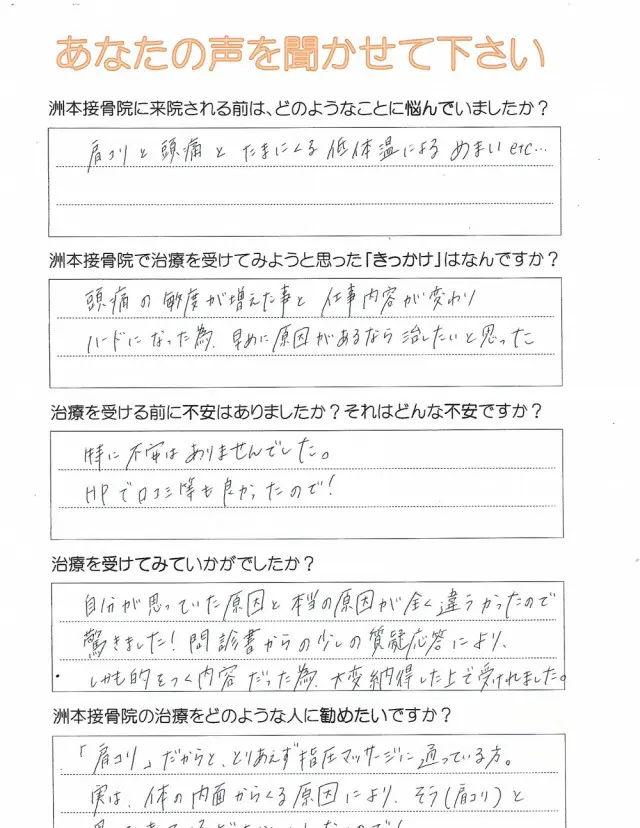 あなたの声を聞かせて下さい
洲本接骨院に来院される前は、どのようなことに悩んでいましたか？
肩コリと頭痛とたまにくる低体温によるめまいetc…
洲本接骨院で治療を受けてみようと思った「きっかけ」はなんですか？
頭痛の敏度が増えた事と仕事内容が変わり
ハードになった為、早めに原因があるなら治したいと思った
治療を受ける前に不安はありましたか？それはどんな不安ですか？
特に不安はありませんでした。
HPで口コミ等も良かったので！
治療を受けてみていかがでしたか？
自分が思っていた原因と本当の原因が全く違うかったので
驚きました！問診書からの少しの質疑応答により、
しかも的をつく内容だった為、大変納得した上で受けれました。
洲本接骨院の治療をどのような人に勧めたいですか？
「肩コリ」だからと、とりあえず指圧マッサージに通っている方。
実は、体の内面からくる原因により、そう(肩コリ)と